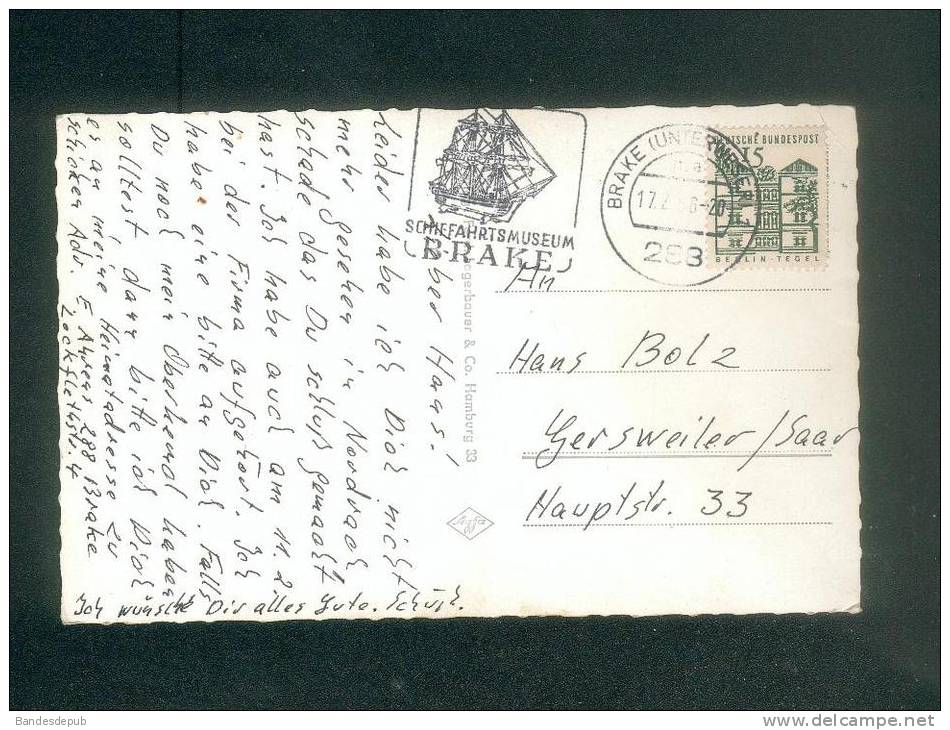 SCHIFFAHRTSMUSEUM
BRAKE
BRAKE (UNTERWESER) 1
17.2. 6-20
288
DEUTSCHE BUNDESPOST
15
BERLIN-TEGEL
An
Hans Bolz
Gersweiler/Saar
Hauptstr. 33
ogerbauer & Co. Hamburg 33
Agfa
Lieber Hans!
Leider habe ich Dich nicht
mehr gesehen in Nordrach
schade das Du schluß gemacht
hast. Ich habe auch am 11.2
bei der Firma aufgehört. Ich
habe eine bitte an Dich. Falls
Du noch mein Oberhemd haben
solltest dann bitte ich Dich
es an meine Heimatadresse zu
schicken Adr. E 288 Brake
Zockflethstr. 4
Ich wünsche Dir alles Gute. Tschüß.
Bandesdepub
www.delcampe.net